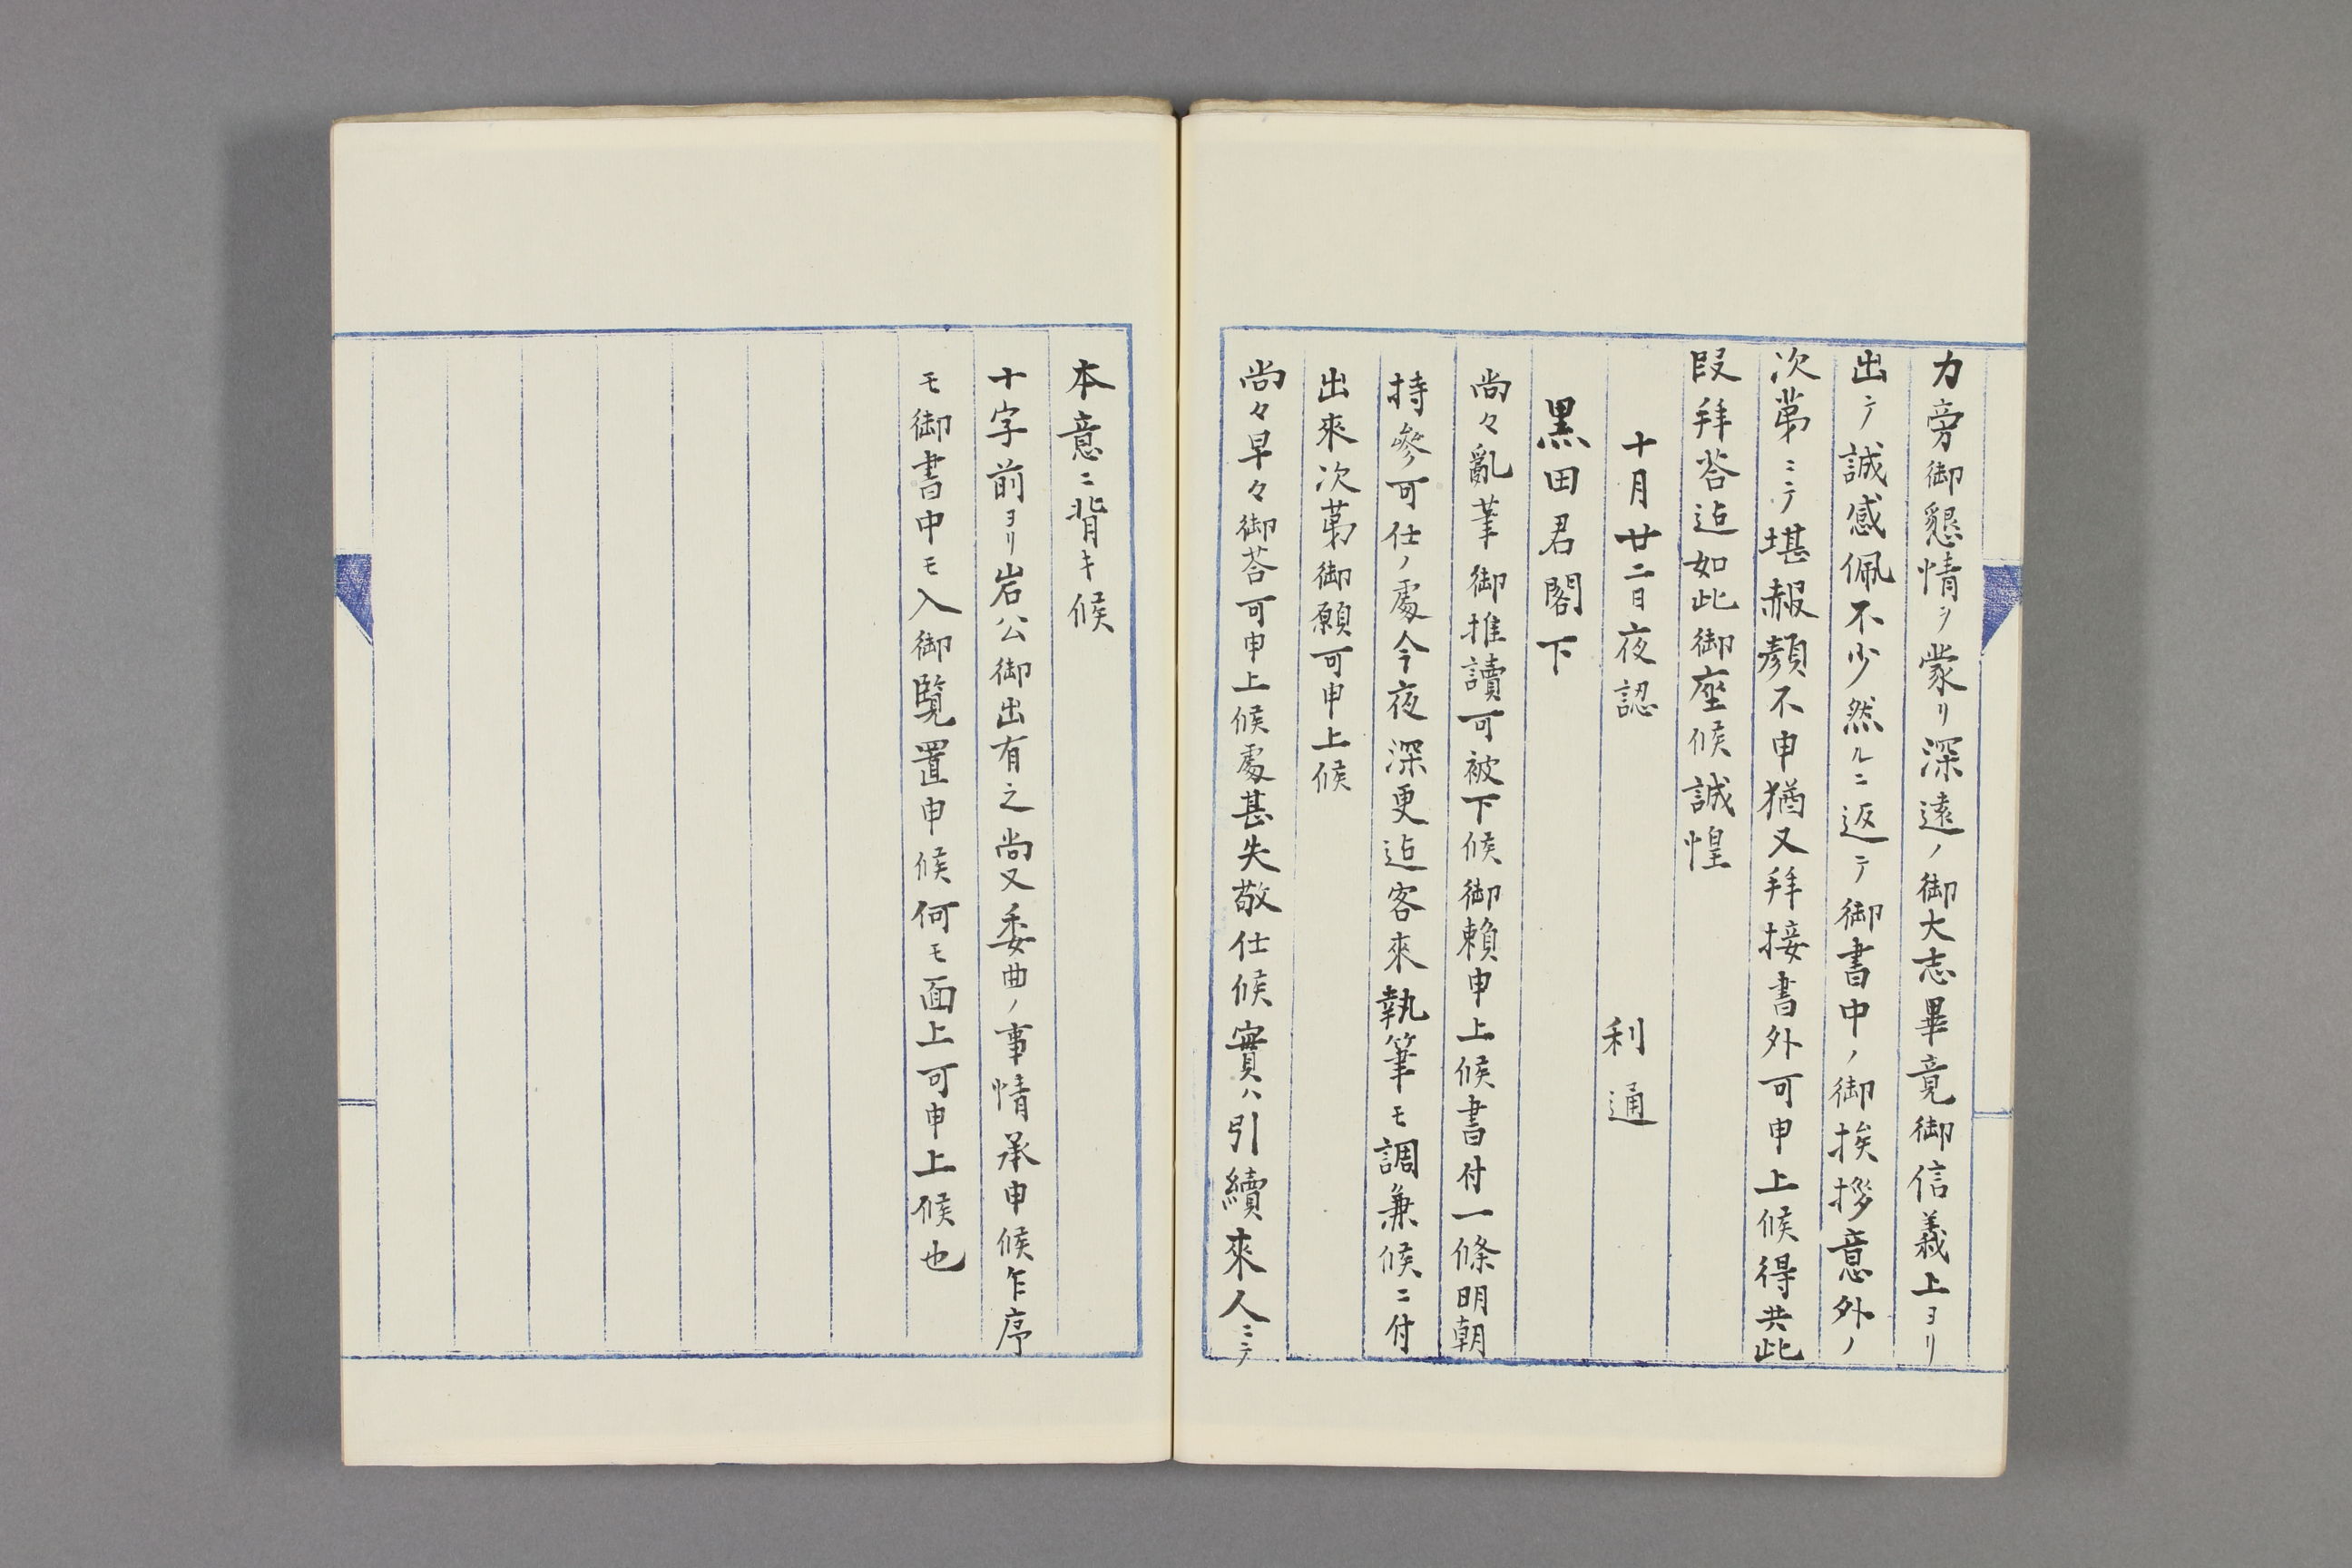 力旁御懇情ヲ蒙リ深遠ノ御大志畢竟御信義上ヨリ
出テ誠感佩不少然ルニ返テ御書中ノ御挨拶意外ノ
次第ニテ堪赧顏不申猶又拜接書外可申上候得共此
段拜答迠如此御座候誠惶
十月廿二日夜認　利通
黒田君閣下
尚々亂筆御推讀可被下候御賴申上候書付一條明朝
持參可仕ノ處今夜深更迠客來執筆モ調兼候ニ付
出來次第御願可申上候
尚々早々御荅可申上候處甚失敬仕候實ハ引續來人ニテ
本意ニ背キ候
十字前ヨリ岩公御出有之尚又委曲ノ事情承申候乍序
モ御書中モ入御覽置申候何モ面上可申上候也